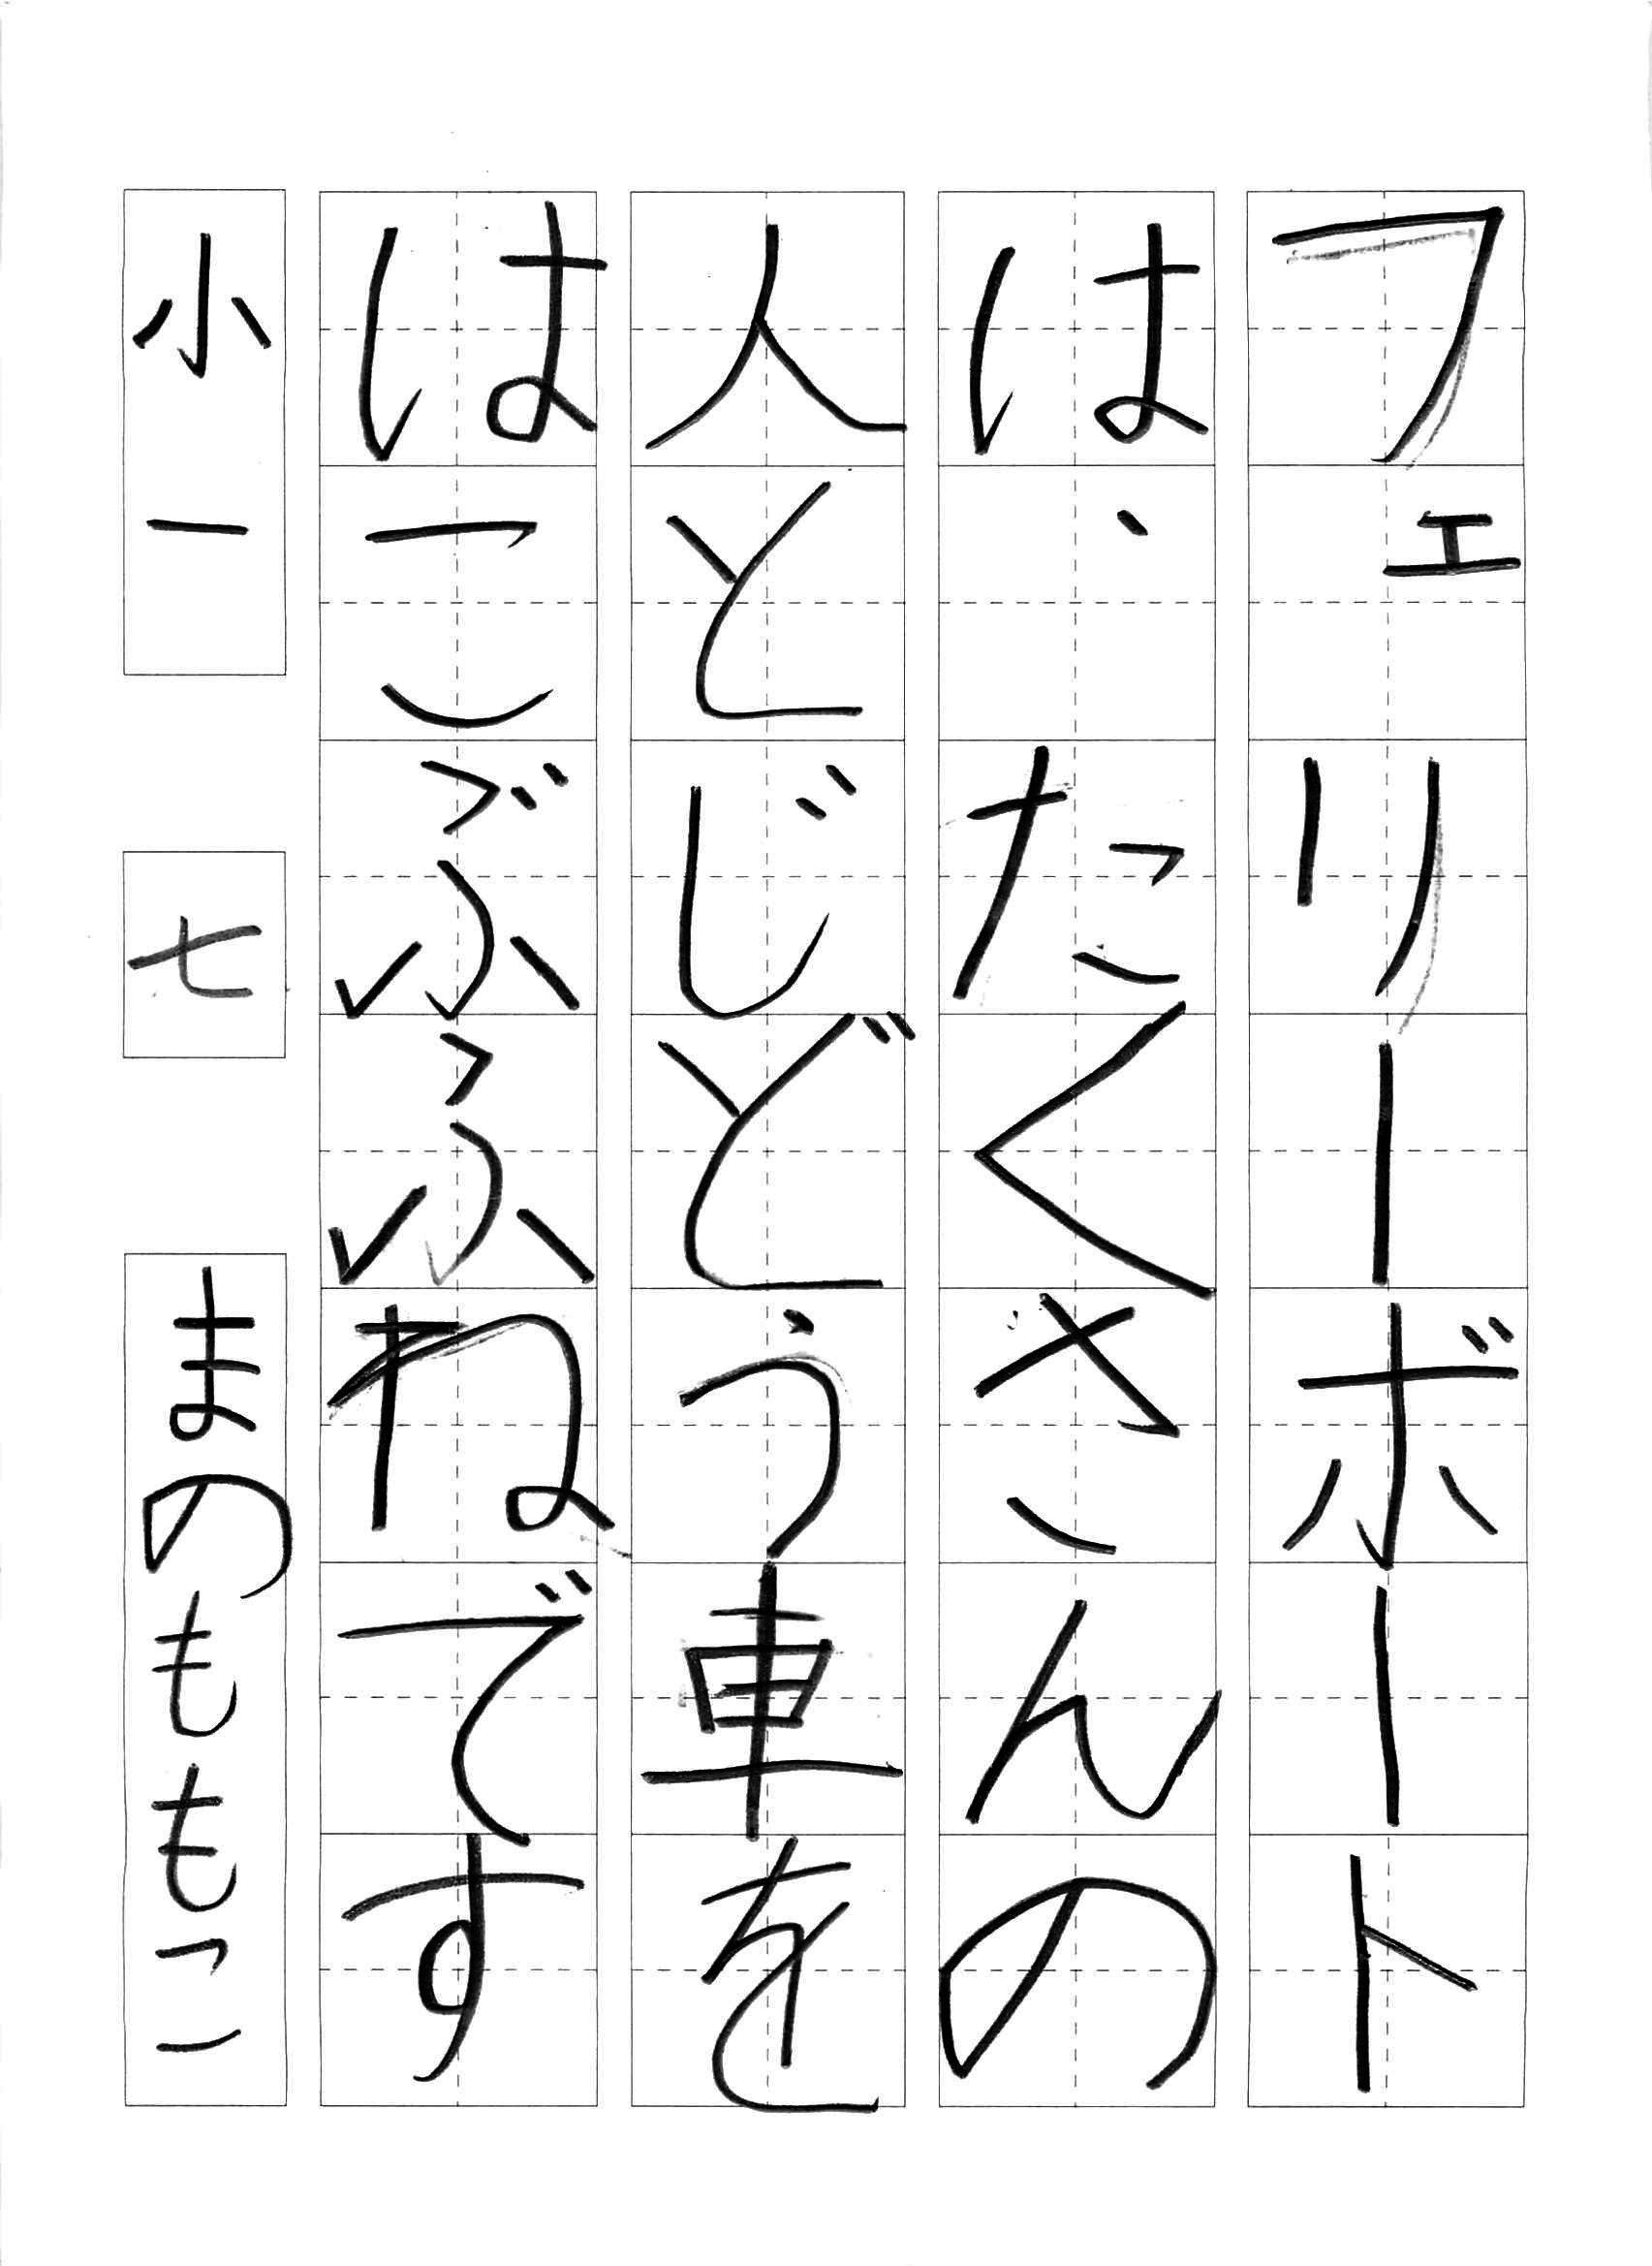 フェリーボート
は、たくさんの
人とじどう車を
はこぶふねです
小一 七 まのももこ